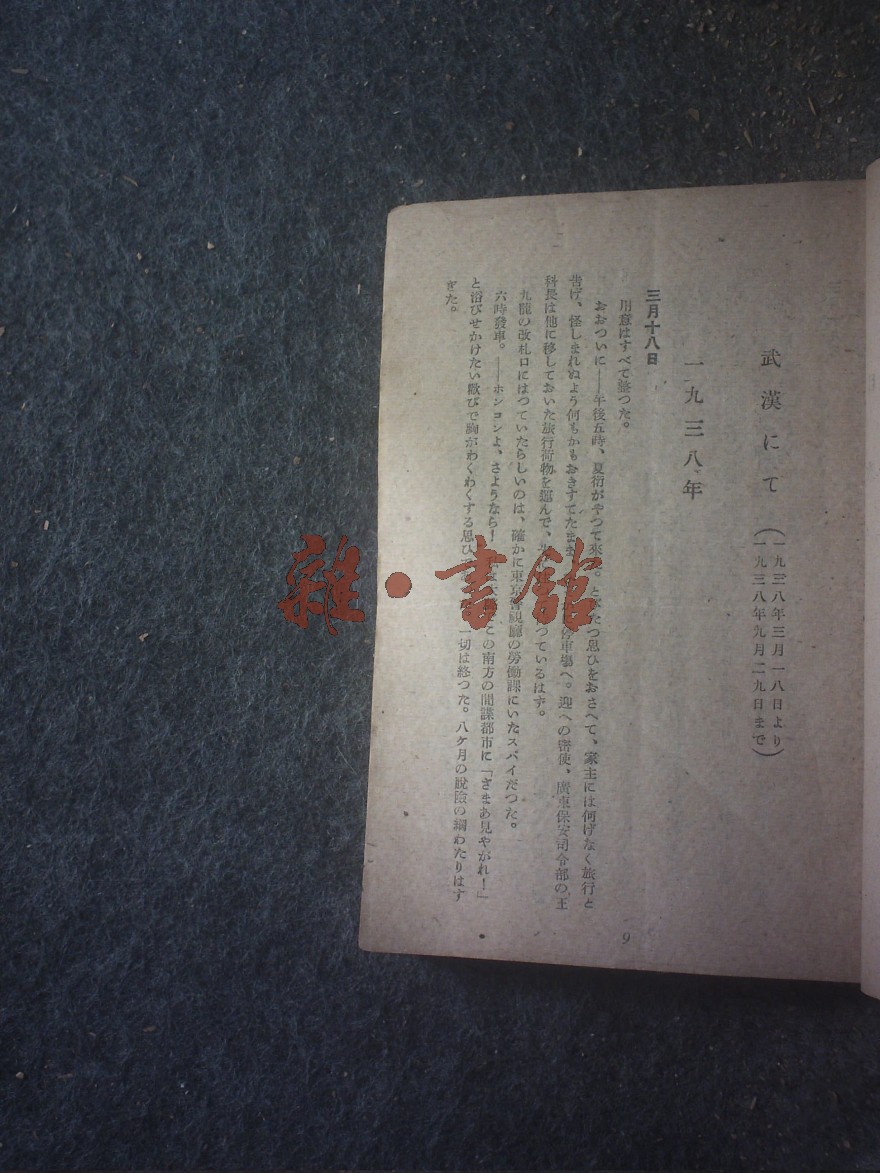 武漢にて
(一九三八年三月一八日より
一九三八年九月二九日まで)
一九三八年
三月十八日
用意はすべて整つた。
おおついに——午後五時、夏衍がやつて来 。と たつ思ひをおさへて、家主には何げなく旅行と
告げ、怪しまれぬよう何もかもおきすてたまま 停車場へ。迎への密使、廣東保安司令部の王
科長は他に移しておいた旅行荷物を運んで、 つているはず。
九龍の改札口にはつていたらしいのは、確かに東京警視廳の勞働課にいたスパイだつた。
六時發車。——ホンコンよ、さようなら! この南方の間諜都市に「さまあ見やがれ!」
と浴びせかけたい歡びで胸がわくわくする思ひ 一切は終つた。八ケ月の脫險の綱わたりはす
ぎた。
9
雜·書館